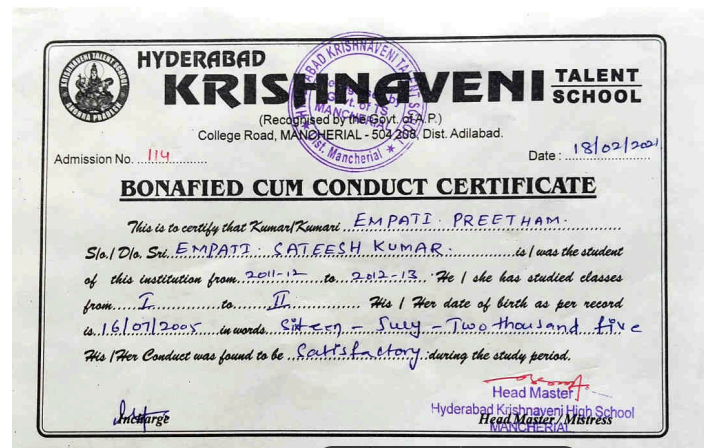 HYDERABAD
KRISHNAVENI TALENT SCHOOL
(Recognised by the Govt. of A.P.)
College Road, MANCHERIAL - 504 208, Dist. Adilabad.
Admission No. 114 Date : 18/02/2021
BONAFIED CUM CONDUCT CERTIFICATE
This is to certify that Kumar/Kumari EMPATI. PREETHAM.
S/o./ D/o. Sri. EMPATI. SATEESH KUMAR. is / was the student
of this institution from 2011-12 to 2012-13. He / she has studied classes
from I to II His / Her date of birth as per record
is 16/07/2005 in words Sixteen - July - Two thousand five
His /Her Conduct was found to be Satisfactory during the study period.
Head Master
Hyderabad Krishnaveni High School
Incharge Head Master / Mistress
MANCHERIAL